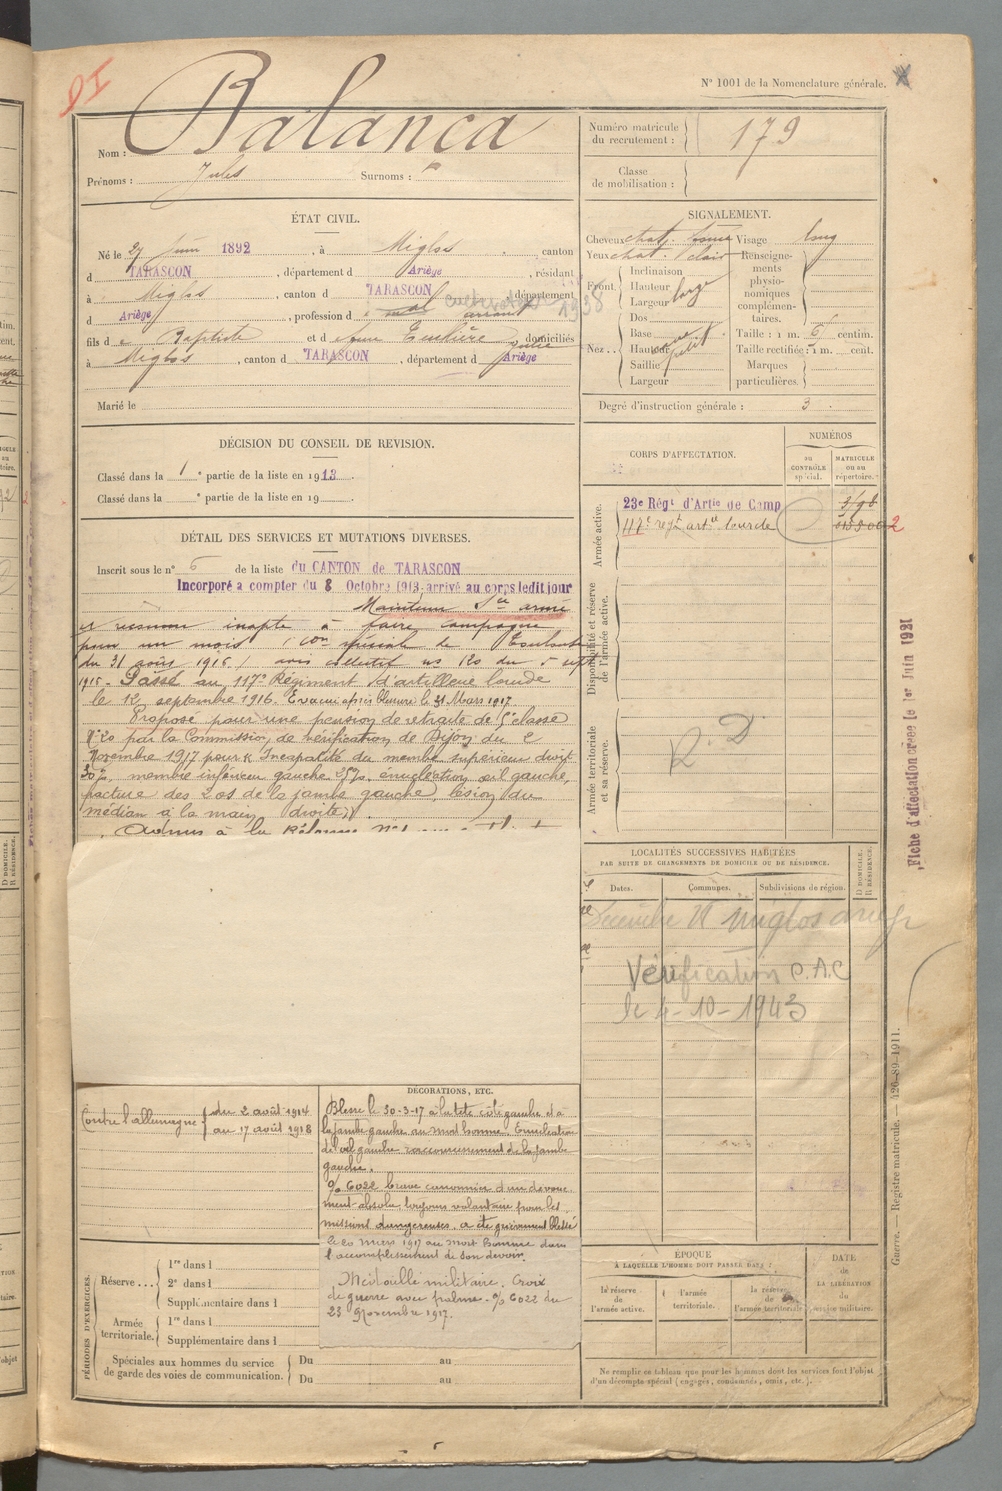 N° 1001 de la Nomenclature générale.
Nom : Balança
Prénoms : Jules Surnoms :
Numéro matricule du recrutement : 179
Classe de mobilisation :
ÉTAT CIVIL.
Né le 27 Juin 1892, à Miglos, canton
d TARASCON, département d Ariège, résidant
à Miglos, canton d TARASCON, département
d Ariège, profession d cultivateur
1938
fils d e Baptiste et d domiciliés
à Miglos, canton d TARASCON, département d Ariège
Marié le
SIGNALEMENT.
Cheveux chat. Visage long
Yeux chat. clair
Renseignements physionomiques complémentaires.
Front. Inclinaison
Hauteur
Largeur large
Nez. Dos
Base
Hauteur petit
Saillie
Largeur
Taille : 1 m. 61 centim.
Taille rectifiée : 1 m. cent.
Marques particulières.
Degré d'instruction générale : 3.
DÉCISION DU CONSEIL DE REVISION.
Classé dans la 1 e partie de la liste en 1913.
Classé dans la e partie de la liste en 19
CORPS D'AFFECTATION.
NUMÉROS
au CONTRÔLE spécial.
MATRICULE ou au répertoire.
Armée active.
23e Régt d'Artie de Camp
117e regt artie lourde
Disponibilité et réserve de l'armée active.
Armée territoriale et sa réserve.
R. D
DÉTAIL DES SERVICES ET MUTATIONS DIVERSES.
Inscrit sous le n° 6 de la liste du CANTON de TARASCON
Incorporé a compter du 8 Octobre 1913 arrivé au corps ledit jour
Maintenu Sce armé
et reconnu inapte à faire campagne
pour un mois (Con spéciale de Toulouse
du 31 août 1916) avis collectif no 120 du 5 sept
1916. Passé au 117e Régiment d'artillerie lourde
le 12 septembre 1916. Evacué après blessure le 31 Mars 1917.
Proposé pour une pension de retraite de 5e classe
par la Commission de vérification de Dijon du 2
Novembre 1917 pour Incapacité du membre supérieur droit
30%, membre inférieur gauche 25%, énucléation oeil gauche,
fracture des 2 os de la jambe gauche, lésion du
médian à la main droite.
Admis à la Réforme N°1
LOCALITÉS SUCCESSIVES HABITÉES
PAR SUITE DE CHANGEMENTS DE DOMICILE OU DE RÉSIDENCE.
Dates. Communes. Subdivisions de région. D DOMICILE. R RÉSIDENCE.
miglos ariege
Vérification C.A.C
le 4-10-1943
Fiche d'affectation créée le 1er Juin 1921
Contre l'allemagne du 2 août 1914
au 17 août 1918
DÉCORATIONS, ETC.
Blessé le 30-3-17 à la tête côté gauche et à
la jambe gauche au mort homme. Enucléation
de l'oeil gauche raccourcissement de la jambe
gauche.
% 6022 brave canonnier d'un dévoue
ment absolu toujours volontaire pour les
missions dangereuses. a été grièvement blessé
le 20 mars 1917 au Mort Homme dans
l'accomplissement de son devoir.
Médaille militaire. Croix
de guerre avec palme. % 6022 du
23 Novembre 1917.
PÉRIODES D'EXERCICES.
Réserve... 1re dans l
2e dans l
Supplémentaire dans l
Armée territoriale. 1re dans l
Supplémentaire dans l
Spéciales aux hommes du service de garde des voies de communication. Du au
Du au
ÉPOQUE
À LAQUELLE L'HOMME DOIT PASSER DANS :
la réserve de l'armée active.
l'armée territoriale.
la réserve de l'armée territoriale.
DATE de LA LIBÉRATION du service militaire.
Ne remplir ce tableau que pour les hommes dont les services font l'objet
d'un décompte spécial (engagés, condamnés, omis, etc.).
Guerre. — Registre matricule. — 426-89-1911.